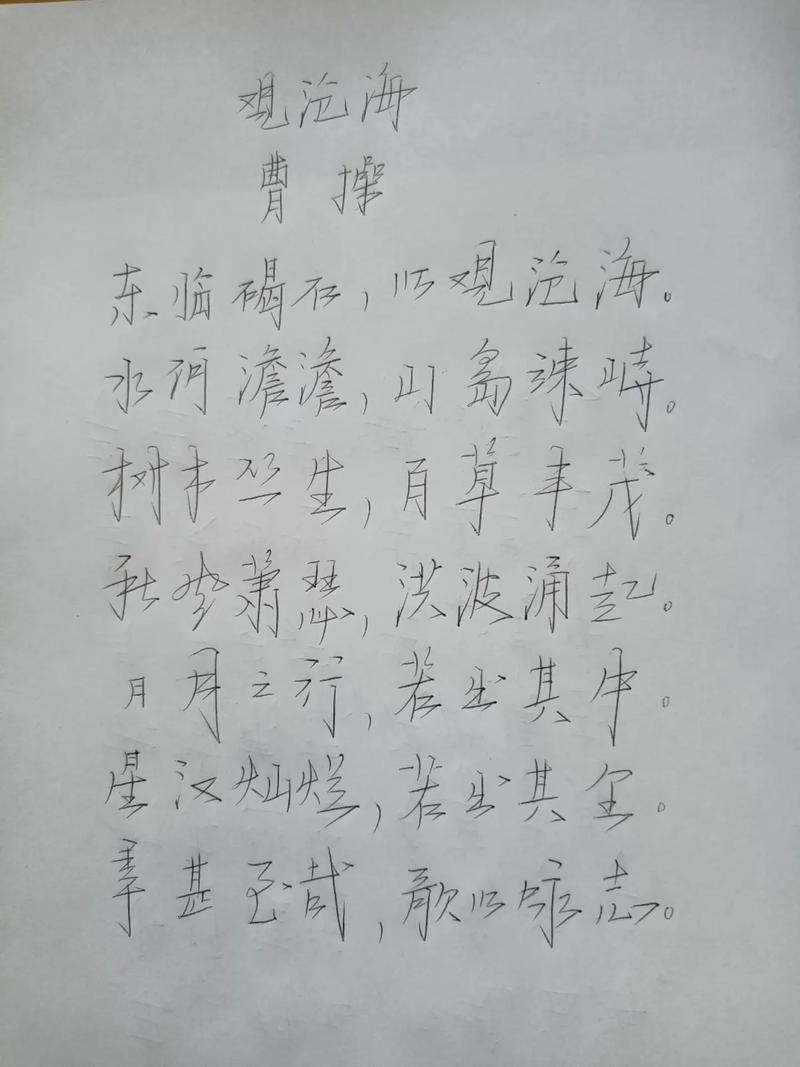 观沧海
曹操
东临碣石,以观沧海。
水何澹澹,山岛竦峙。
树木丛生,百草丰茂。
秋风萧瑟,洪波涌起。
日月之行,若出其中。
星汉灿烂,若出其里。
幸甚至哉,歌以咏志。